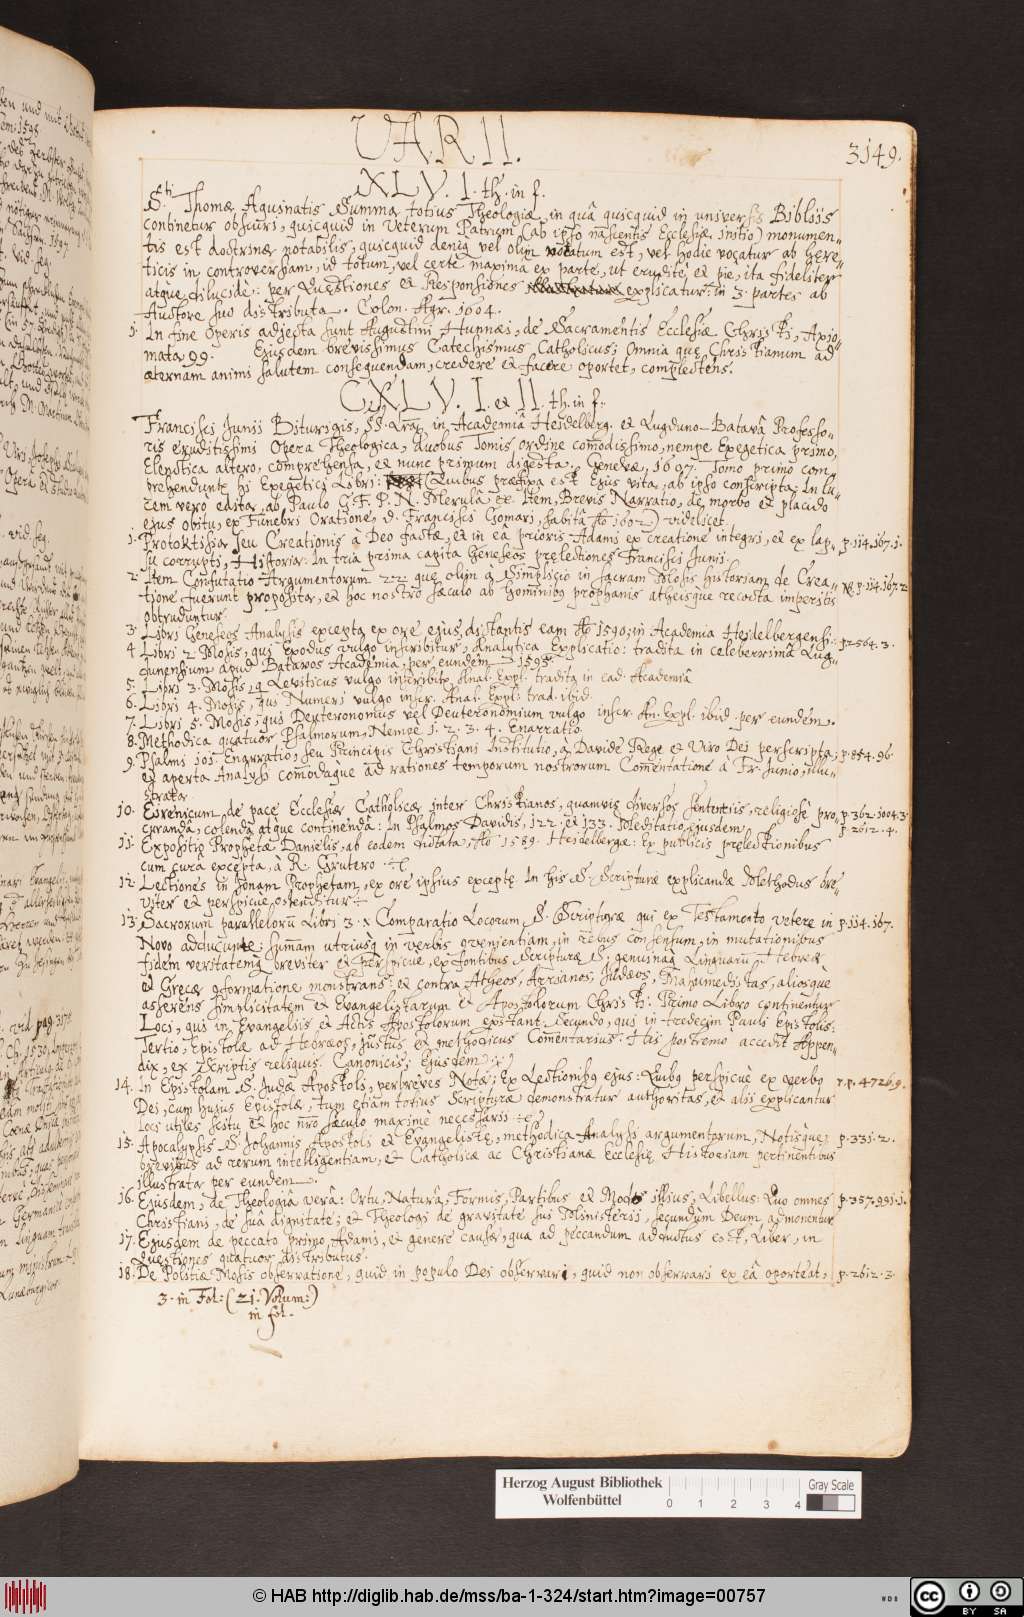 VARII.
3149.
XLV. I. th. in f.
Sti Thomæ Aquinatis Summa totius Theologiæ, in quâ quicquid in universis Bibliis
continetur obscuri, quicquid in Veterum Patrum (ab ipso nascentis Ecclesiæ initio) monumen=
tis est doctrinæ notabilis, quicquid deniq vel olim vocatum est, vel hodie vocatur ab Hære=
ticis in controversiam, id totum, vel certè maxima ex parte, ut erudite et pie, ita fideliter
atque dilucidè: per Quæstiones et Responsiones explicatur: in 3. partes ab
Auctore suo distributa. Colon. Agr. 1604.
1. In fine operis adjecta sunt Augustini Hunnæi, de Sacramentis Ecclesiæ Christi, Axio=
mata 99. Ejusdem brevissimus Catechismus Catholicus; Omnia quę Christianum ad
æternam animi salutem consequendam, credere et facere oportet, complectens.
CXLV. I. et II. th. in f.
Francisci Junii Biturigis, SS. in Academiâ Heidelberg. et Lugduno-Batavâ Professo=
ris eruditissimi Opera Theologica, duobus Tomis, ordine comodissimo, nempe Exegetica primo,
Elenctica altero, comprehensa, et nunc primum digesta. Genevæ, 1607. Tomo primo com=
prehendunt hi Exegetici Libri: (Quibus præfixa est Ejus vita, ab ipso conscripta: In lu=
cem vero edita, ab Paulo G. F. P. N. Merulâ etc. Item, Brevis Narratio, de morbo et placido
ejus obitu, ex Funebri Oratione, d. Francisci Gomari, habitâ Ao 1602.) videlicet.
1. Protoktisia, seu Creationis à Deo factæ, et in eâ prioris Adami ex creatione integri, et ex lap= p. 114. 167. 1.
su corrupti, Historia: In tria prima capita Geneseos prælectiones Francisci Junii.
2. Item Confutatio Argumentorum 22. quę olim a Simplicio in sacram Mosis historiam de Crea= p. 114. 167. 2
tione fuerunt proposita, et hoc nostro sæculo ab hominibus prophanis atheisque recocta imperitis
obtruduntur.
3. Libri Geneseos Analysis excepta ex ore ejus dictantis eam Ao 1590; in Academia Heidelbergensi. p. 564. 3.
4. Libri 2. Mosis, qui Exodus vulgo inscribitur, Analytica Explicatio: tradita in celeberrimâ Lug=
dunensium apud Batavos Academia, per eundem 1595.
5. Libri 3. Mosis, Leviticus vulgo inscribitr, Anal. Expl. tradita in ead. Academiâ
6. Libri 4. Mosis, qui Numeri vulgo inscr. Anal. Expl. trad. ibid.
7. Libri 5. Mosis: qui Deuteronomius vel Deuteronomium vulgo inscr. An. Expl. ibid. per eundem.
8. Methodica quatuor Psalmorum, Nempe 1. 2. 3. 4. Enarratio.
9. Psalmi 101 Enarratio, seu Principis Christiani Institutio, a Davide Rege et Viro Dei perscripta, p. 854. 96.
et aperta Analysi comodâque ad rationes temporum nostrorum Comentatione à Fr. Junio, illu=
strata.
10. Eirenicum de pace Ecclesiæ Catholicæ inter Christianos, quamvis diversos sententiis, religiosè pro= p. 362. 1004. 3.
curanda, colenda atque continendâ: In Psalmos Davidis, 122. et 133. Meditatio Ejusdem. p. 2612. 4.
11. Expositio Prophetæ Danielis, ab eodem dictata, Ao 1589. Heidelbergæ: Ex publicis prælectionibus
cum curâ excepta, à R. Grutero.
12. Lectiones in Jonam Prophetam, ex ore ipsius exceptę In his S. Scripturæ explicandæ Methodus bre=
viter et perspicue, ostenditur.
13. Sacrorum parallelorũ Libri 3. Comparatio Locorum S. Scripturæ qui ex Testamento vetere in p. 114. 167.
Novo adducuntr: Sumam utriusq in verbis convenientiam, in rebus consensum, in mutationibus
fidem veritatemq breviter et perspicue, ex fontibus Scripturæ S. genuinaq Linguarũ Hebreæ
et Græcæ conformatione monstrans: et contra Atheos, Arrianos, Judæos, Mahumedistas, aliosque
asserens simplicitatem et Evangelistarum et Apostolorum Christi: Primo Libro continentur
Loci, qui in Evangeliis et Actis Apostolorum exstant: Secundo, qui in tredecim Pauli Epistolis.
Tertio, Epistolæ ad Hebræos, justus et methodicus Comentarius: His postremo accedit Appen=
dix, ex Scriptis reliquis Canonicis; Ejusdem.
14. In Epistolam S. Judæ Apostoli, perbreves Notæ; Ex Lectionibus ejus: Quibus perspicuè ex verbo p. 4726. 9.
Dei, cum hujus Epistolæ, tum etiam totius Scripturæ demonstratur authoritas, et alii explicantur
loci utiles scitu et hoc nro sæculo maximè necessarii.
15. Apocalypsis S. Johannis Apostoli et Evangelistę, methodica Analysi argumentorum, Notisque; p. 331. 2.
brevibus ad rerum intelligentiam, et Catholicæ ac Christianæ Ecclesię Historiam pertinentibus
illustrata per eundem.
16. Ejusdem, de Theologiâ verâ: Ortu, Naturâ, Formis, Partibus et Modo illius, Libellus: Quo omnes p. 357. 991. 1.
Christiani, de suâ dignitate; et Theologi de gravitate sui Ministerii, secundum Deum admonentur
17. Ejusdem de peccato primo Adami, et genere causæ, qua ad peccandum adductus est, Liber, in
Quæstiones quatuor distributus.
18. De Politiæ Mosis observatione, quid in populo Dei observari, quid non observari ex eâ oporteat, p. 2612. 3.
3. in Fol: (21. Volum:)
in fol.
Herzog August Bibliothek
Wolfenbüttel
0 1 2 3 4
Gray Scale
© HAB http://diglib.hab.de/mss/ba-1-324/start.htm?image=00757
cc BY SA